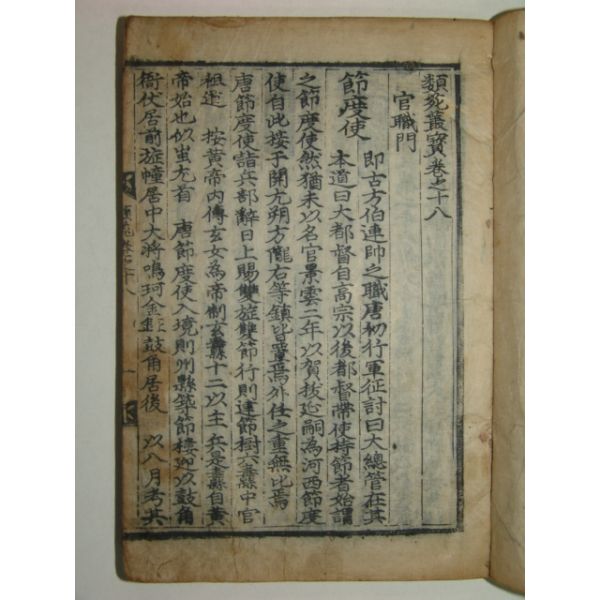 類苑叢寶卷之十八
官職門
節度使
即古方伯連帥之職唐初行軍征討曰大總管在其
本道曰大都督自高宗以後都督帶使持節者始謂
之節度使然猶未以名官景雲二年以賀拔延嗣為河西節度
使自此接于開元朔方隴右等鎮皆置焉外任之重無比焉
唐節度使詣兵部辭日上賜雙旌雙節行則建節樹六纛中官
祖送 按黃帝內傳玄女為帝制玄纛十二以主兵是纛自黃
帝始也似蚩尤首 唐節度使入境則州縣築節樓迎以鼓角
衙仗居前旌幢居中大將鳴珂金鉦鼓角居後 以八月考其